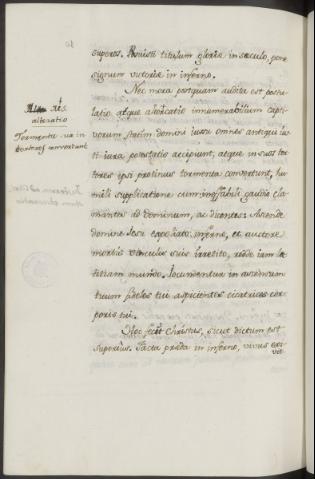 superos. Posuisti titulum gloriæ in sæculo, pone
signum victoriæ in inferno.
Nec mora postquam audita est postu-
latio, atque altercatio innumerabilium capti-
vorum statim domini jussu omnes antiqui ius-
ti jura potestatis accipiunt, atque in suos tor-
tores ipsi protinus tormenta convertunt, hu-
mili supplicatione cum ineffabili gaudio cla-
mantes ad dominum, ac dicentes: Ascende
domine Jesu expoliato inferno, et auctore
mortis vinculis suis irretito, redde jam læ-
titiam mundo. Jocundentur in ascensu
tuo fideles tui aspicientes cicatrices cor-
poris tui.
Hoc fecit Christus, sicut dictum est
superius. Facta præda in inferno, vivus
alteratio
Tormenta sua in
tortores convertunt